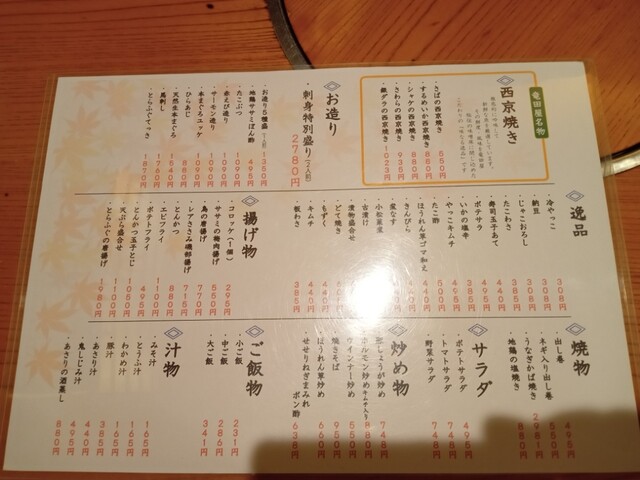 竜田屋名物
西京焼き
・さばの西京焼き 550円
・するめいか西京焼き 880円
・シャケの西京焼き 880円
・さわらの西京焼き 935円
・銀ダラの西京焼き 1023円
お造り
・刺身特別盛り(2人前) 2780円
・お造り5種盛(1人前) 1350円
・地鶏ササミぽん酢 495円
・たこぶつ 1090円
・赤えび造り
・サーモン造り 1090円
・本まぐろユッケ 1090円
・ひらあじ 880円
・天然生本まぐろ 1540円
・馬刺し 1760円
・とらふぐてっさ 1870円
逸品
・冷やっこ 308円
・納豆 308円
・じゃこおろし 308円
・たこわさ
・寿司玉子あて
・ポテサラ
・いかの塩辛
・やっこキムチ
・たこ酢
・ほうれん草ゴマ和え
・きんぴら
・小松菜煮
・古漬け
・漬物盛合せ
・どて焼き
・もずく 440円
・キムチ 440円
・板わさ 385円
揚げ物
・コロッケ(1個) 295円
・ササミの梅肉揚げ 550円
・鳥の唐揚げ 770円
・レアささみ磯部揚げ 715円
・とんかつ 880円
・エビフライ 1100円
・ポテトフライ 495円
・とんかつ玉子とじ 1050円
・天ぷら盛合せ 1100円
・とらふぐの唐揚げ 1980円
焼物
・出し巻 495円
・ネギ入り出し巻 550円
・うなぎかば焼き 2981円
・地鶏の塩焼き
サラダ
・ポテトサラダ 495円
・トマトサラダ 748円
・野菜サラダ 748円
炒め物
・豚しょうが炒め 748円
・ホルモン炒めキムチ入り 880円
・ウインナー炒め 550円
・焼きそば 950円
・ほうれん草炒め 660円
・せせりねぎまみれポン酢 638円
ご飯物
・小ご飯 231円
・中ご飯 286円
・大ご飯 341円
汁物
・みそ汁 165円
・とうふ汁 165円
・わかめ汁
・豚汁
・あさり汁 385円
・鬼しじみ汁 495円
・あさりの酒蒸し 880円